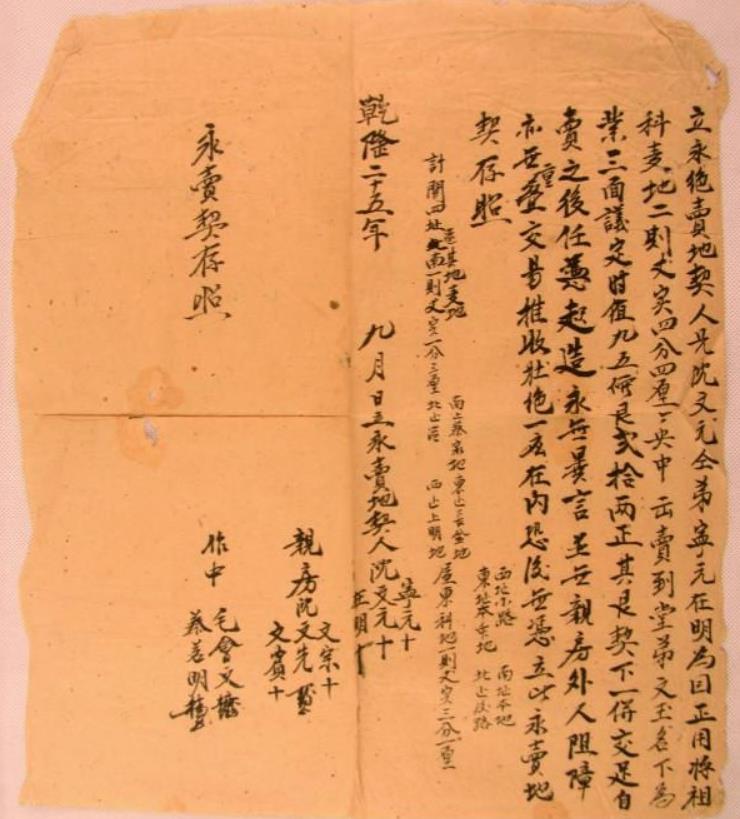 立永絶賣地契人兄沈文元仝弟寧元在明為因正用將祖
科麦地二則丈实四分四厘 央中 出賣到堂弟文玉名下為
業三面議定時值九五 艮弍拾両正其艮契下一併交足自
賣之後任憑起造永無異言並无親房外人阻障
亦无重叠交易推收壮絶一应在內恐後无憑立此永賣地
契存照
計開四址 南一則丈实一分三厘
南止蔡家地
西止上明地
屋東科地一則丈实三分一厘
西址小路 南址本地
東址 地 北止 路
乾隆二十五年 九月日立永賣地契人沈文元十
寧元十
在明十
親房沈文先
文宗十
文賓十
作中 毛會文
蔡善明
永賣契存照